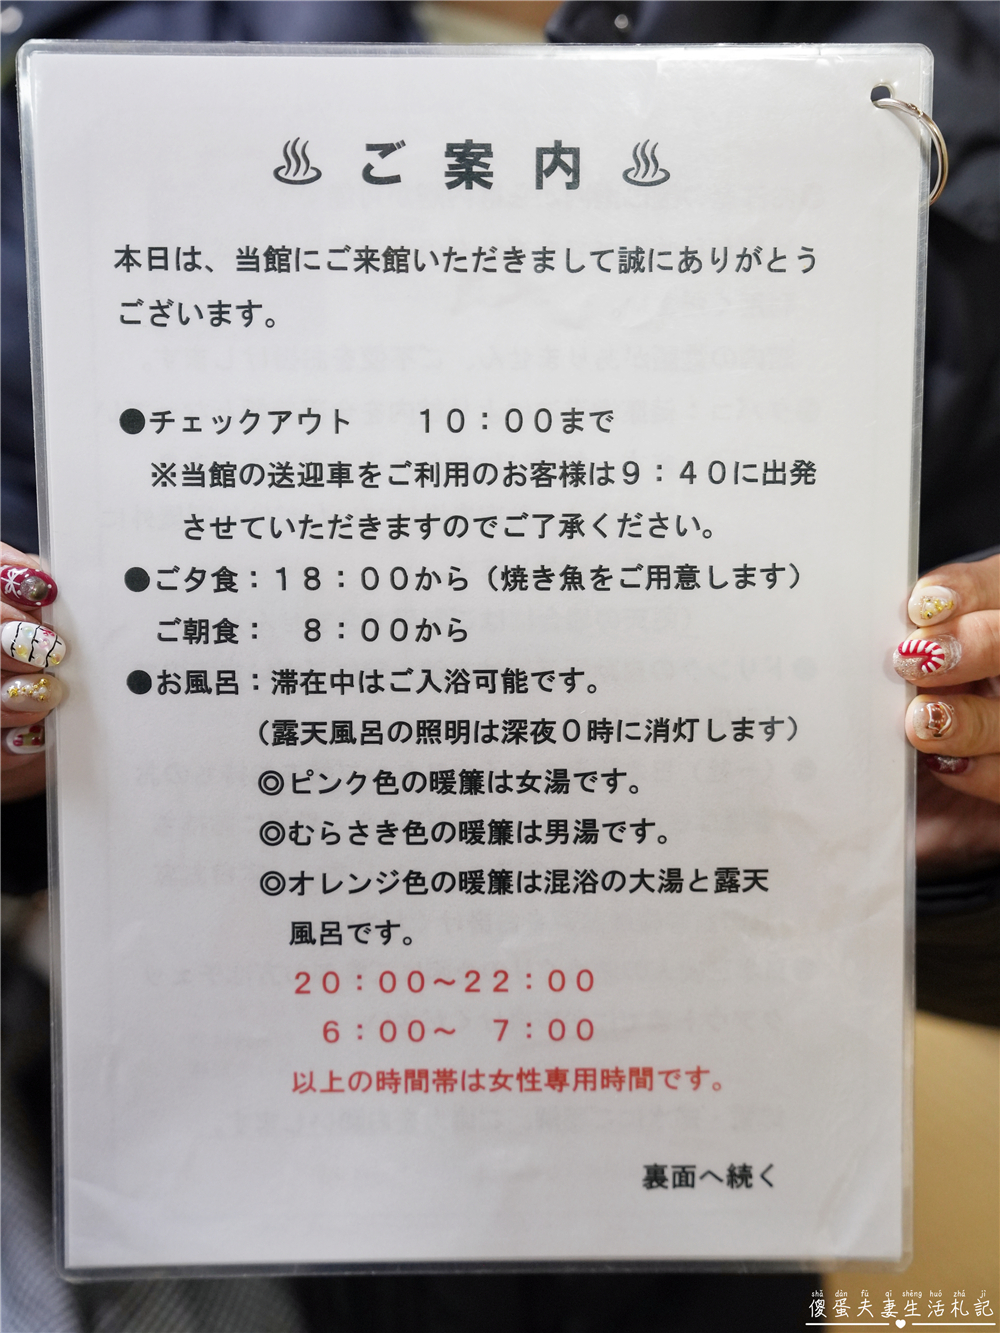 ♨ ご案内 ♨
本日は、当館にご来館いただきまして誠にありがとう
ございます。
●チェックアウト　　１０：００まで
※当館の送迎車をご利用のお客様は９：４０に出発
させていただきますのでご了承ください。
●ご夕食：１８：００から（焼き魚をご用意します）
ご朝食：　８：００から
●お風呂：滞在中はご入浴可能です。
（露天風呂の照明は深夜０時に消灯します）
◎ピンク色の暖簾は女湯です。
◎むらさき色の暖簾は男湯です。
◎オレンジ色の暖簾は混浴の大湯と露天
風呂です。
２０：００～２２：００
６：００～　７：００
以上の時間帯は女性専用時間です。
裏面へ続く
shǎ dàn fū qī shēng huó zhá jì
傻蛋夫妻生活札記